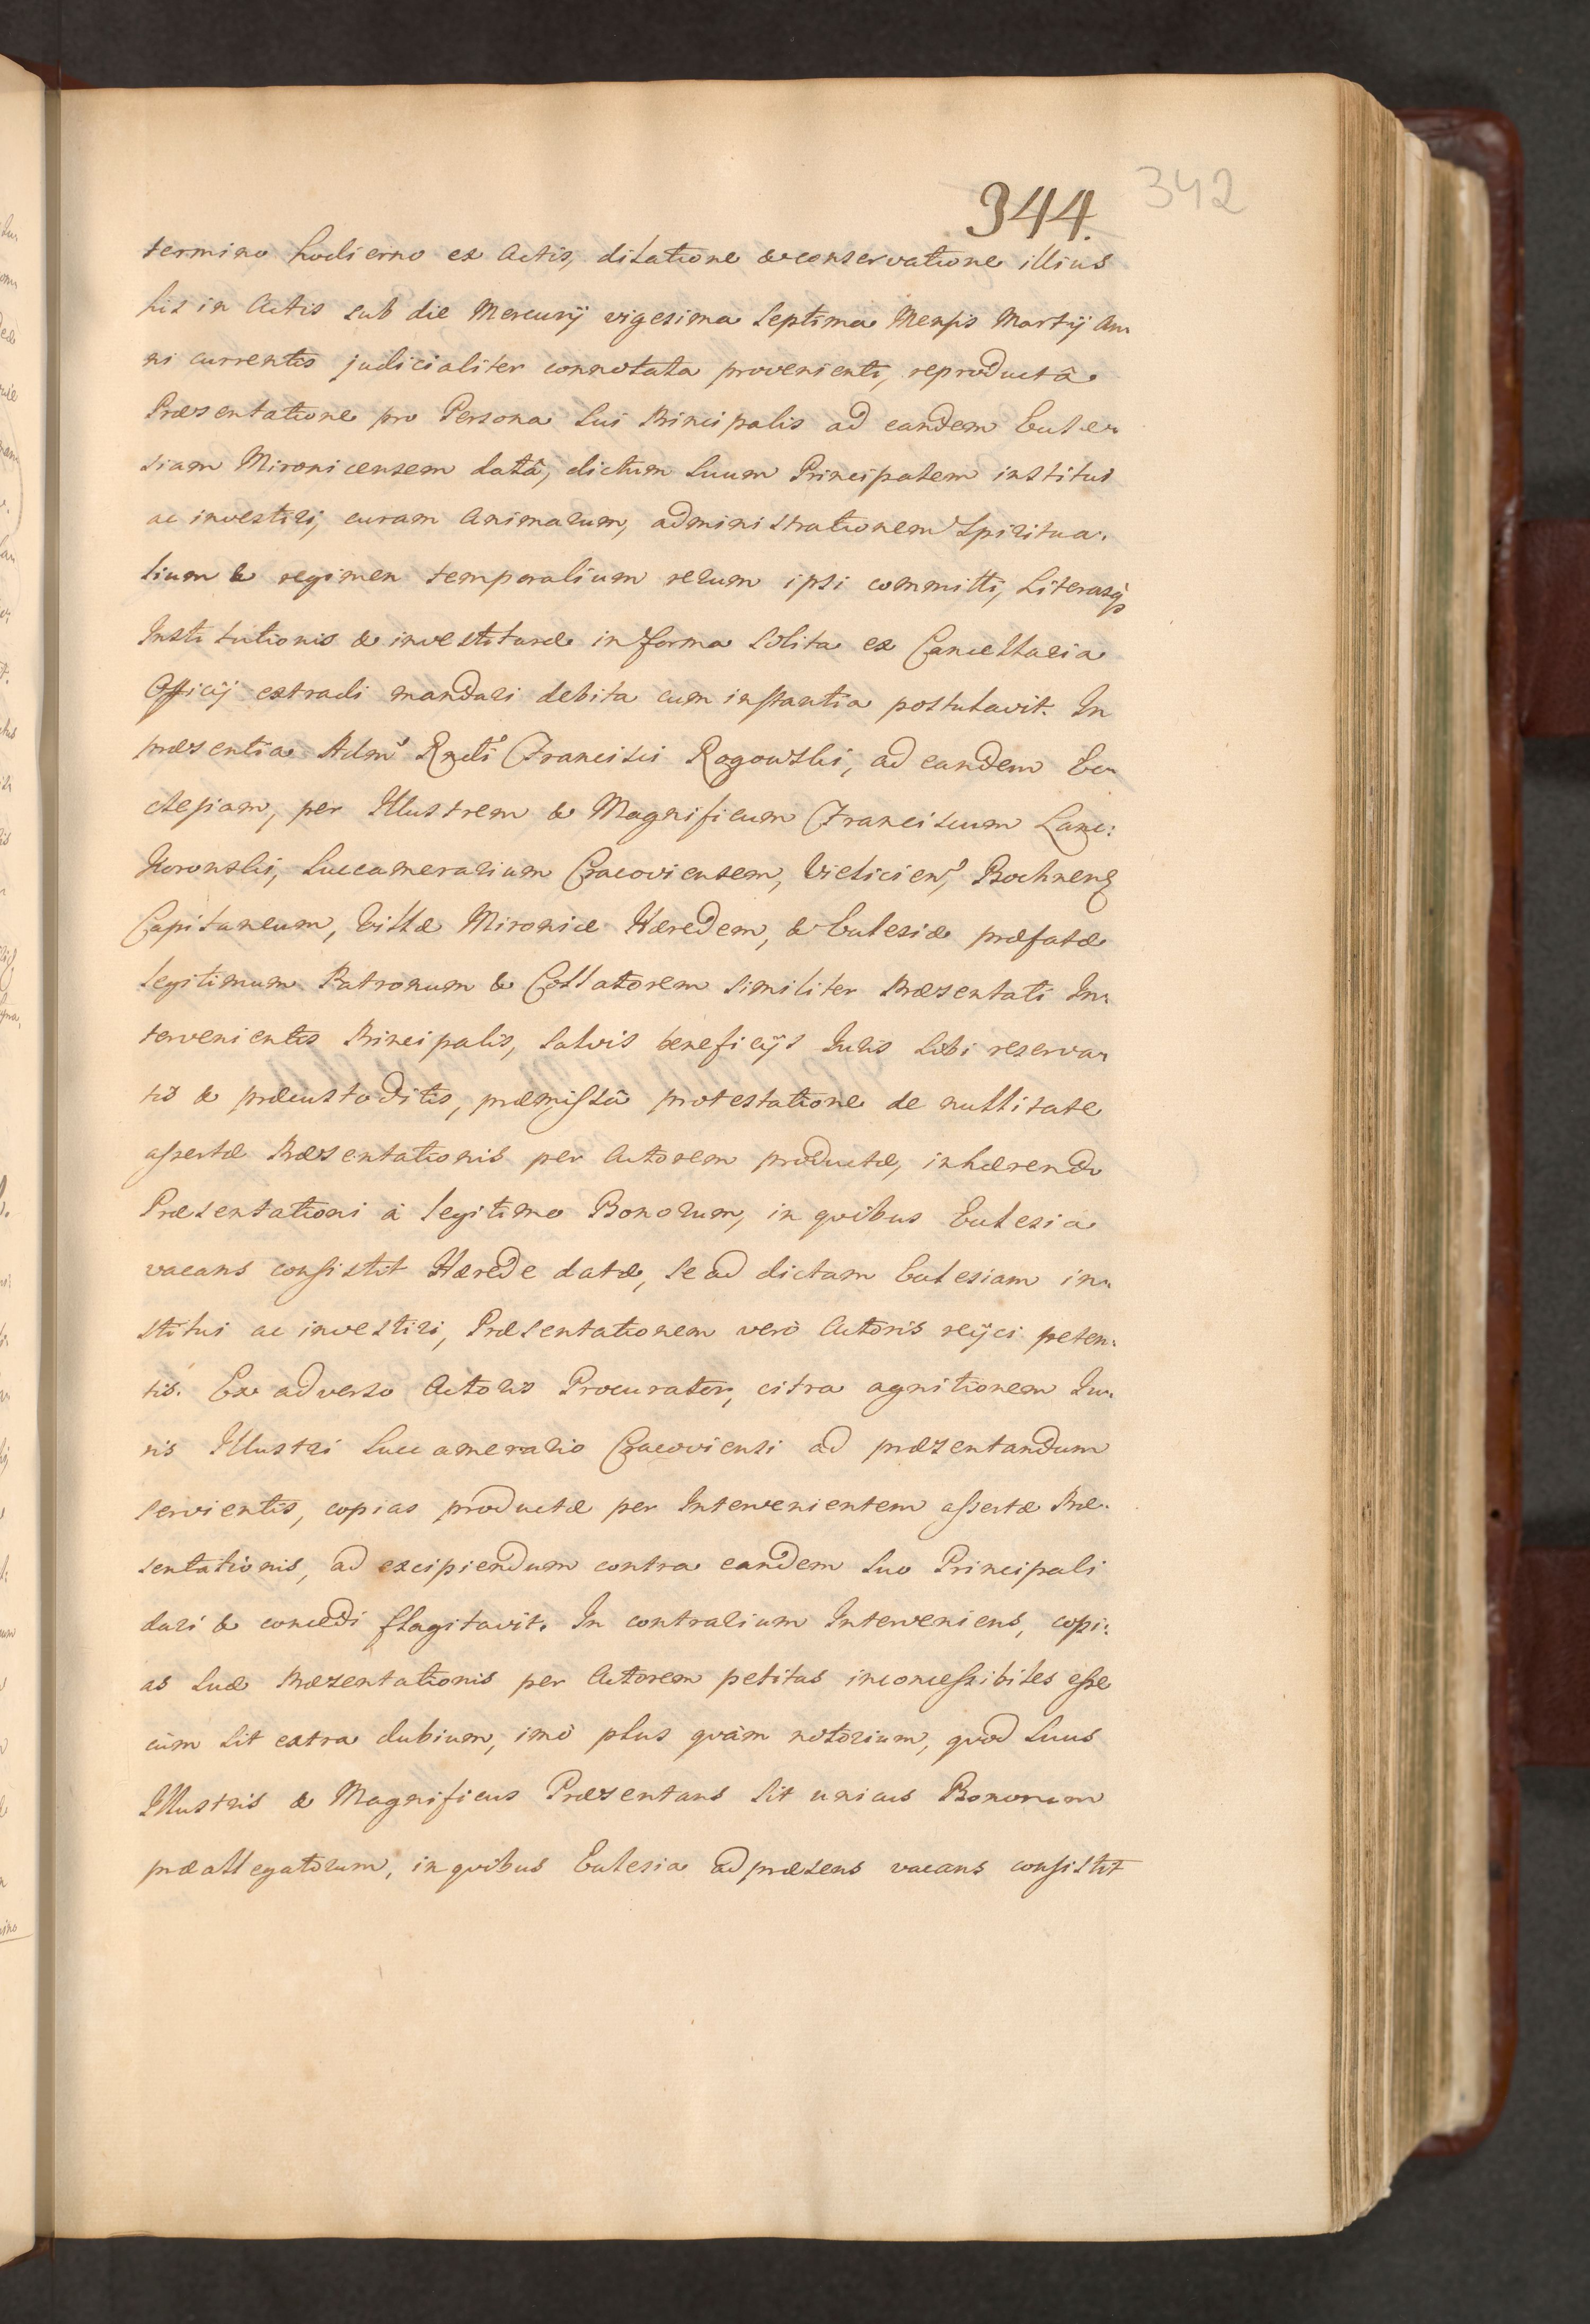 344.
342
termino hodierno ex Actis, dilatione & conservatione illius
his in Actis sub die Mercurij vigesima Septima Mensis Martij An-
ni currentis judicialiter connotata provenienti, reproductâ
Præsentatione pro Persona Sui Principalis ad eandem Eccle-
siam Mironicensem datâ, dictum Suum Principalem institui
ac investiri, curam Animarum, administrationem Spiritua-
lium & regimen temporalium rerum ipsi committi, Literasq̃
Institutionis & investituræ in forma Solita ex Cancellaria
Officij extradi mandari debita cum instantia postulavit. In
præsentia Admͦ Rndi Francisci Rogowski, ad eandem Ec-
clesiam, per Illustrem & Magnificum Franciscum Lanc:
Koronski, Succamerarium Cracoviensem, Vielicien, Bochnen
Capitaneum, Villæ Mironice Hæredem, & Ecclesiæ præfatæ
legitimum Patronum & Collatorem similiter Præsentati In-
tervenientis Principalis, Salvis beneficijs Juris Sibi reserva-
tis & præcustoditis, præmissâ protestatione de nullitate
assertæ Præsentationis per Actorem productæ, inhærendo
Præsentationi à legitimo Bonorum, in quibus Ecclesia
vacans consistit Hærede datæ, Se ad dictam Ecclesiam in-
stitui ac investiri, Præsentationem verò Actoris reijci peten-
tis. Ex adverso Actoris Procurator, citra agnitionem Ju-
ris Illustri Succamerario Cracoviensi ad præzentandum
servientis, copias productæ per Intervenientem assertæ Præ-
sentationis, ad excipiendum contra eandem Suo Principali
dari & concedi flagitavit. In contrarium Interveniens, copi:
as Suæ Præzentationis per Actorem petitas inconcessibiles esse
cùm Sit extra dubium, imò plus quàm notorium, quod Suus
Illustris & Magnificus Præzentans Sit unicus Bonorum
præallegatorum, in quibus Ecclesia ad præsens vacans consistit